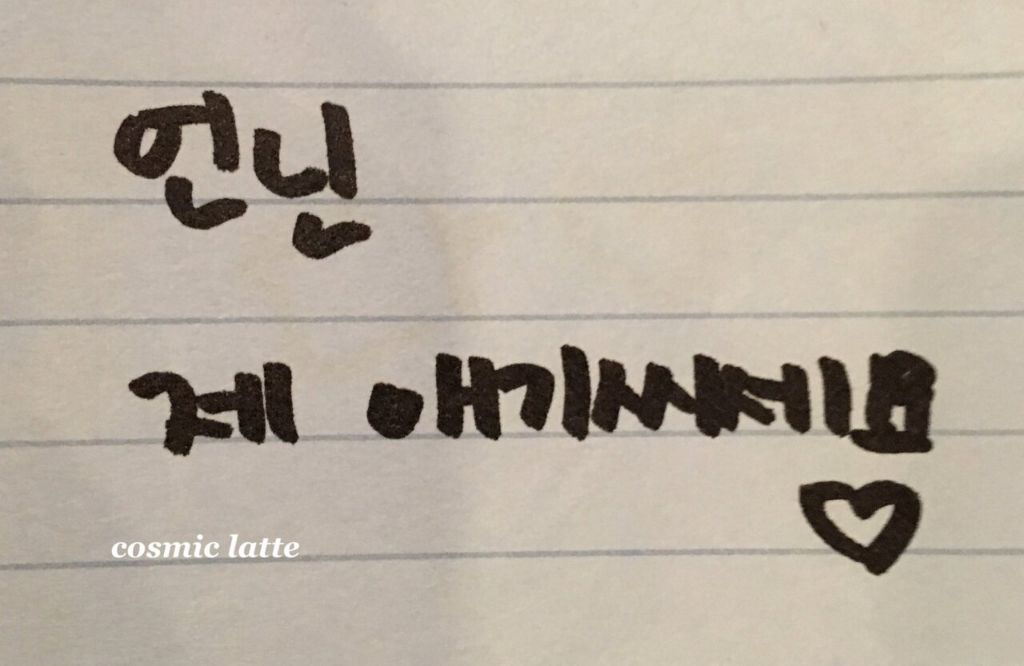 언닌
제 애기씨세요
♡
cosmic latte